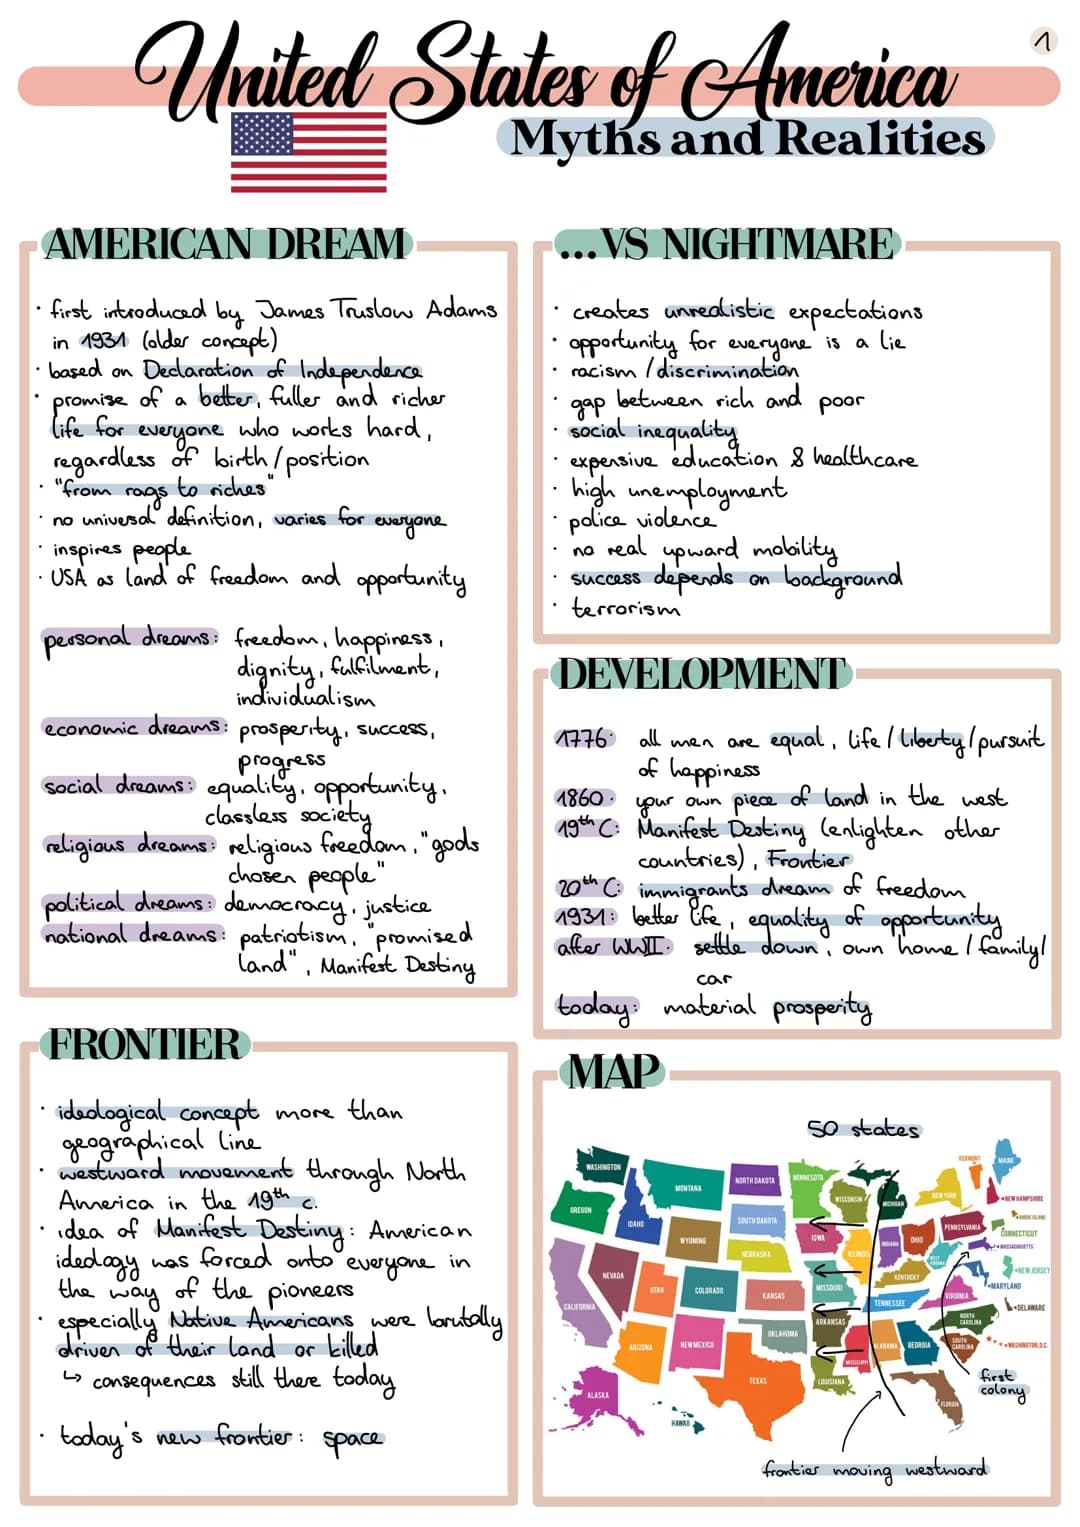 1
United States of America
Myths and Realities
AMERICAN DREAM
· first introduced by James Truslow Adams
in 1931 (older concept)
· based on Declaration of Independence
· promise of a better, fuller and richer
life for everyone who works hard,
regardless of birth/position
· "from rags to riches"
· no universal definition, varies for everyone
· inspires people
· USA as land of freedom and opportunity
personal dreams: freedom, happiness,
dignity, fulfilment,
individualism
economic dreams: prosperity, success,
progress
social dreams: equality, opportunity,
classless society
religious dreams: religious freedom, "gods
chosen people"
political dreams: democracy, justice
national dreams: patriotism, "promised
land", Manifest Destiny
...VS NIGHTMARE
· creates unrealistic expectations
· opportunity for everyone is a lie
· racism / discrimination
· gap between rich and poor
· social inequality
· expensive education & healthcare
· high unemployment
· police violence
· no real upward mobility
· success depends on background
· terrorism
DEVELOPMENT
1776: all men are equal, life / liberty / pursuit
of happiness
1860: your own piece of land in the west
19th C: Manifest Destiny (enlighten other
countries), Frontier
20th C: immigrants dream of freedom
1931: better life, equality of opportunity
after WWII: settle down, own home / family/
car
today: material prosperity
FRONTIER
· ideological concept more than
geographical line
· westward movement through North
America in the 19th c.
· idea of Manifest Destiny: American
ideology was forced onto everyone in
the way of the pioneers
· especially Native Americans were brutally
driven of their land or killed
↳ consequences still there today
· today's new frontier: space
MAP
50 states
WASHINGTON
OREGON
IDAHO
MONTANA
NORTH DAKOTA
MINNESOTA
WISCONSIN
MICHIGAN
VERMONT
MAINE
NEW YORK
NEW HAMPSHIRE
RHODE ISLAND
CONNECTICUT
MASSACHUSETTS
SOUTH DAKOTA
WYOMING
IOWA
NEBRASKA
ILLINOIS
INDIANA
OHIO
PENNSYLVANIA
WEST VIRGINIA
NEW JERSEY
MARYLAND
DELAWARE
NEVADA
UTAH
COLORADO
KANSAS
MISSOURI
KENTUCKY
VIRGINIA
CALIFORNIA
ARIZONA
NEW MEXICO
OKLAHOMA
ARKANSAS
TENNESSEE
NORTH CAROLINA
SOUTH CAROLINA
WASHINGTON, D.C.
MISSISSIPPI
ALABAMA
GEORGIA
TEXAS
LOUISIANA
FLORIDA
ALASKA
HAWAII
first
colony
frontier moving westward